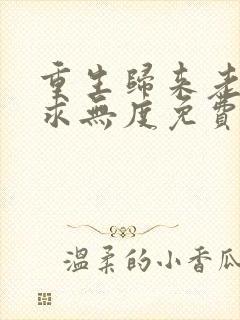 重生歸來老
求無度免費
溫柔的小香瓜